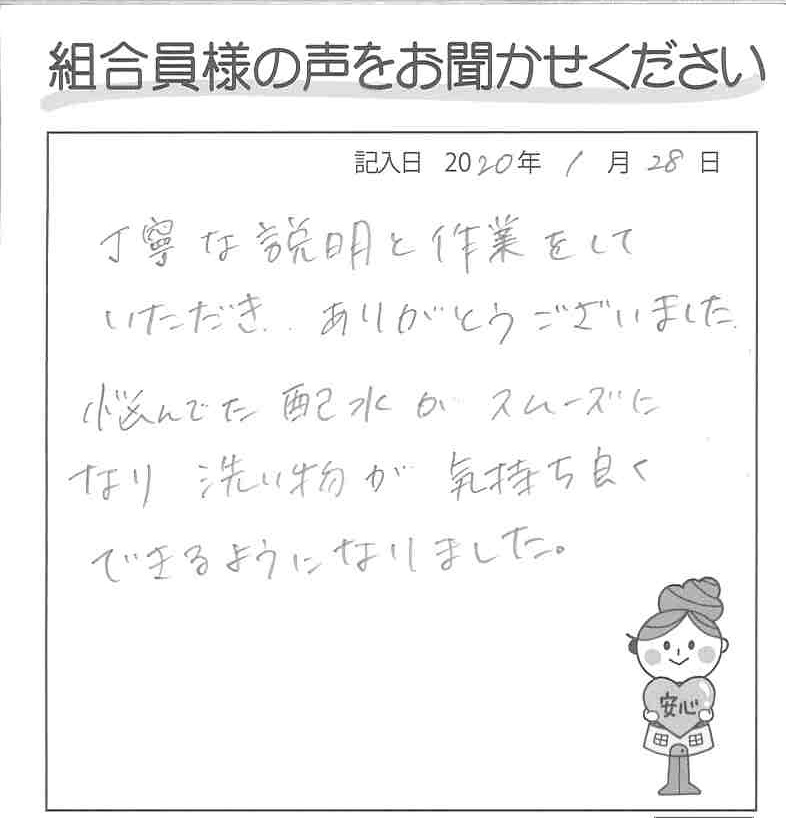 組合員様の声をお聞かせください
記入日 2020年 1月 28日
丁寧な説明と作業をして
いただき、ありがとうございました。
悩んでた配水がスムーズに
なり 洗い物が 気持ち良く
できるようになりました。
安心